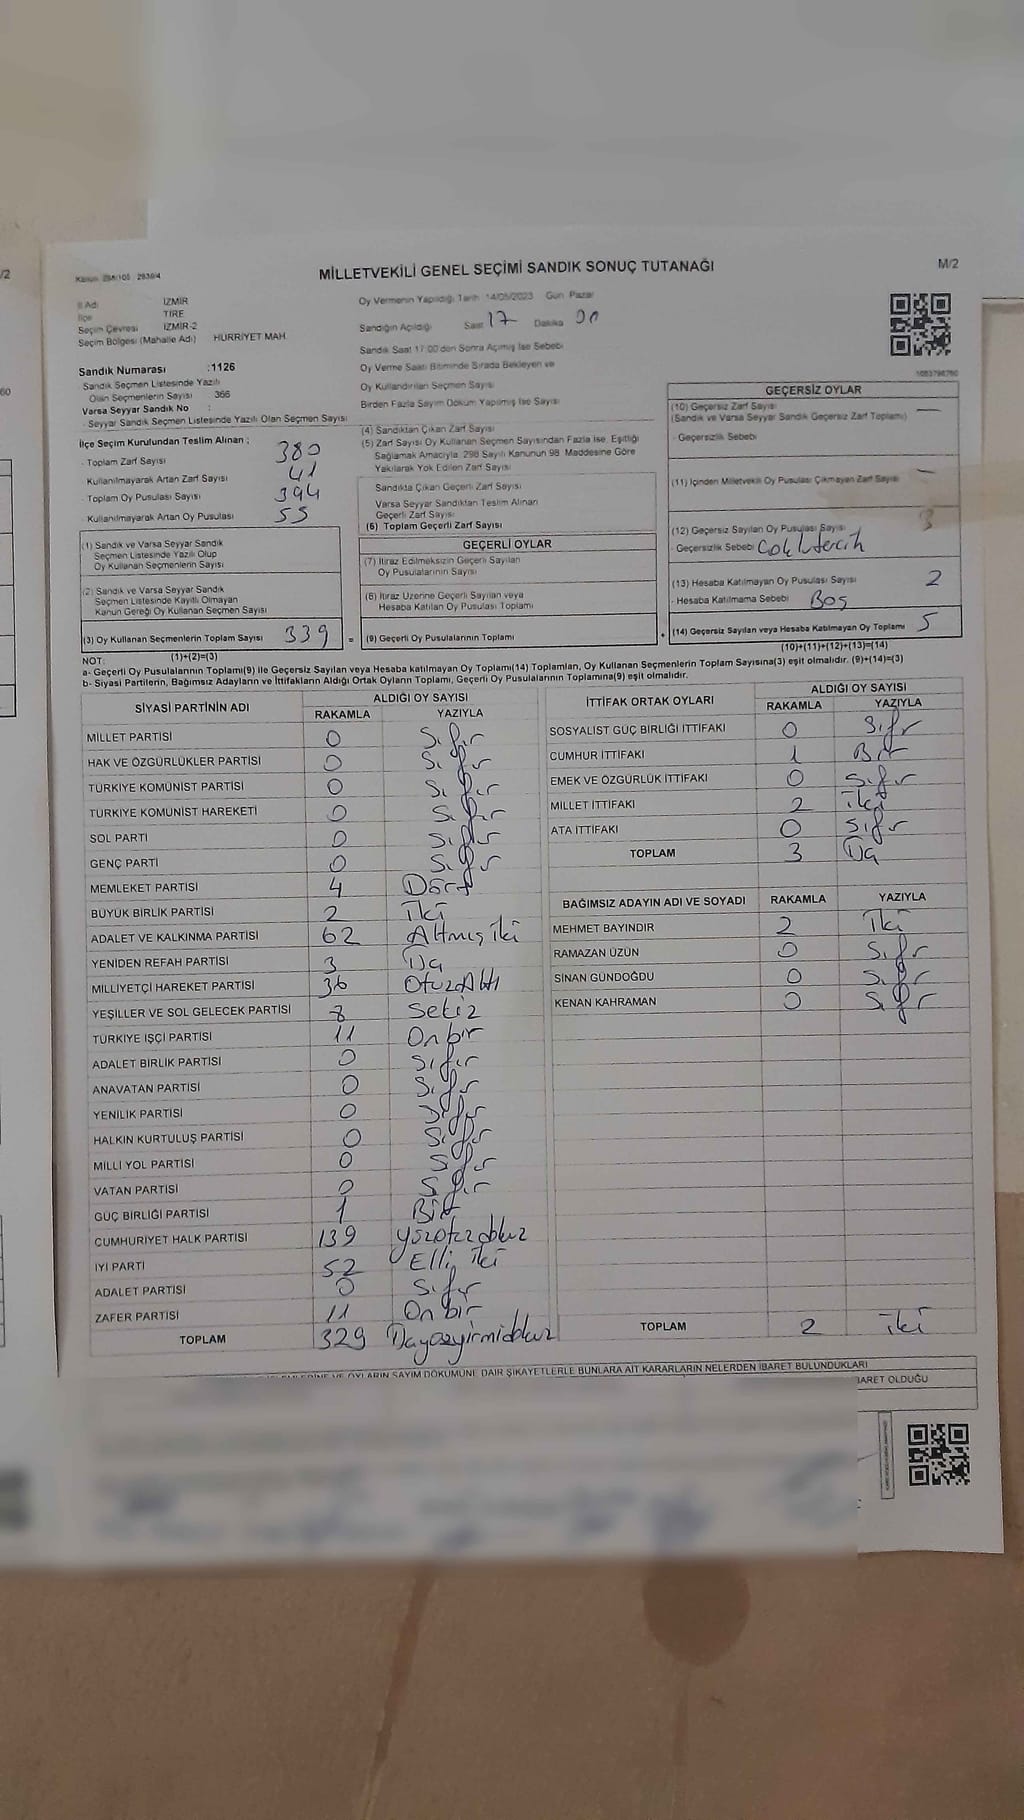 /2
60
MİLLETVEKİLİ GENEL SEÇİMİ SANDIK SONUÇ TUTANAĞI
M/2
İl Adı İZMİR
İlçe TİRE
Seçim Çevresi İZMİR-2
Seçim Bölgesi (Mahalle Adı) HÜRRİYET MAH.
Oy Vermenin Yapıldığı Tarih 14/05/2023 Gün Pazar
Sandığın Açıldığı Saat 17 Dakika
Sandık Saat 17:00'den Sonra Açılmış İse Sebebi
Oy Verme Saati Bitiminde Sırada Bekleyen ve
Oy Kullandırılan Seçmen Sayısı
Birden Fazla Sayım Döküm Yapılmış İse Sayısı
Sandık Numarası :1126
Sandık Seçmen Listesinde Yazılı
Olan Seçmenlerin Sayısı : 366
Varsa Seyyar Sandık No :
- Seyyar Sandık Seçmen Listesinde Yazılı Olan Seçmen Sayısı
İlçe Seçim Kurulundan Teslim Alınan ;
- Toplam Zarf Sayısı 380
- Kullanılmayarak Artan Zarf Sayısı 41
- Toplam Oy Pusulası Sayısı 394
- Kullanılmayarak Artan Oy Pusulası 55
(1) Sandık ve Varsa Seyyar Sandık
Seçmen Listesinde Yazılı Olup
Oy Kullanan Seçmenlerin Sayısı
(2) Sandık ve Varsa Seyyar Sandık
Seçmen Listesinde Kayıtlı Olmayan
Kanun Gereği Oy Kullanan Seçmen Sayısı
(3) Oy Kullanan Seçmenlerin Toplam Sayısı 339 =
(1)+(2)=(3)
(4) Sandıktan Çıkan Zarf Sayısı
(5) Zarf Sayısı Oy Kullanan Seçmen Sayısından Fazla İse, Eşitliği
Sağlamak Amacıyla, 298 Sayılı Kanunun 98. Maddesine Göre
Yakılarak Yok Edilen Zarf Sayısı
Sandıkta Çıkan Geçerli Zarf Sayısı
Varsa Seyyar Sandıktan Teslim Alınan
Geçerli Zarf Sayısı
(6) Toplam Geçerli Zarf Sayısı
GEÇERLİ OYLAR
(7) İtiraz Edilmeksizin Geçerli Sayılan
Oy Pusulalarının Sayısı
(8) İtiraz Üzerine Geçerli Sayılan veya
Hesaba Katılan Oy Pusulası Toplamı
(9) Geçerli Oy Pusulalarının Toplamı +
GEÇERSİZ OYLAR
(10) Geçersiz Zarf Sayısı —
(Sandık ve Varsa Seyyar Sandık Geçersiz Zarf Toplamı)
- Geçersizlik Sebebi
(11) İçinden Milletvekili Oy Pusulası Çıkmayan Zarf Sayısı —
(12) Geçersiz Sayılan Oy Pusulası Sayısı 3
- Geçersizlik Sebebi
(13) Hesaba Katılmayan Oy Pusulası Sayısı 2
- Hesaba Katılmama Sebebi Boş
(14) Geçersiz Sayılan veya Hesaba Katılmayan Oy Toplamı 5
(10)+(11)+(12)+(13)=(14)
NOT:
a- Geçerli Oy Pusulalarının Toplamı(9) ile Geçersiz Sayılan veya Hesaba katılmayan Oy Toplamı(14) Toplamları, Oy Kullanan Seçmenlerin Toplam Sayısına(3) eşit olmalıdır. (9)+(14)=(3)
b- Siyasi Partilerin, Bağımsız Adayların ve İttifakların Aldığı Ortak Oyların Toplamı, Geçerli Oy Pusulalarının Toplamına(9) eşit olmalıdır.
SİYASİ PARTİNİN ADI ALDIĞI OY SAYISI
RAKAMLA YAZIYLA
MİLLET PARTİSİ 0 Sıfır
HAK VE ÖZGÜRLÜKLER PARTİSİ 0 Sıfır
TÜRKİYE KOMÜNİST PARTİSİ 0 Sıfır
TÜRKİYE KOMÜNİST HAREKETİ 0 Sıfır
SOL PARTİ 0 Sıfır
GENÇ PARTİ 0 Sıfır
MEMLEKET PARTİSİ 4 Dört
BÜYÜK BİRLİK PARTİSİ 2 İki
ADALET VE KALKINMA PARTİSİ 62 Altmış iki
YENİDEN REFAH PARTİSİ 3 Üç
MİLLİYETÇİ HAREKET PARTİSİ 36 OtuzAltı
YEŞİLLER VE SOL GELECEK PARTİSİ 8 Sekiz
TÜRKİYE İŞÇİ PARTİSİ 11 Onbir
ADALET BİRLİK PARTİSİ 0 Sıfır
ANAVATAN PARTİSİ 0 Sıfır
YENİLİK PARTİSİ 0 Sıfır
HALKIN KURTULUŞ PARTİSİ 0 Sıfır
MİLLİ YOL PARTİSİ 0 Sıfır
VATAN PARTİSİ 0 Sıfır
GÜÇ BİRLİĞİ PARTİSİ 1 Bir
CUMHURİYET HALK PARTİSİ 139 yüzotuzdokuz
İYİ PARTİ 52 Elli iki
ADALET PARTİSİ 0 Sıfır
ZAFER PARTİSİ 11 Onbir
TOPLAM 329 Üçyüzyirmidokuz
İTTİFAK ORTAK OYLARI ALDIĞI OY SAYISI
RAKAMLA YAZIYLA
SOSYALİST GÜÇ BİRLİĞİ İTTİFAKI 0 Sıfır
CUMHUR İTTİFAKI 1 Bir
EMEK VE ÖZGÜRLÜK İTTİFAKI 0 Sıfır
MİLLET İTTİFAKI 2 iki
ATA İTTİFAKI 0 Sıfır
TOPLAM 3 Üç
BAĞIMSIZ ADAYIN ADI VE SOYADI RAKAMLA YAZIYLA
MEHMET BAYINDIR 2 İki
RAMAZAN ÜZÜN 0 Sıfır
SİNAN GÜNDOĞDU 0 Sıfır
KENAN KAHRAMAN 0 Sıfır
TOPLAM 2 iki
OYLARIN SAYIM DÖKÜMÜNE DAİR ŞİKAYETLERLE BUNLARA AİT KARARLARIN NELERDEN İBARET BULUNDUKLARI
İBARET OLDUĞU